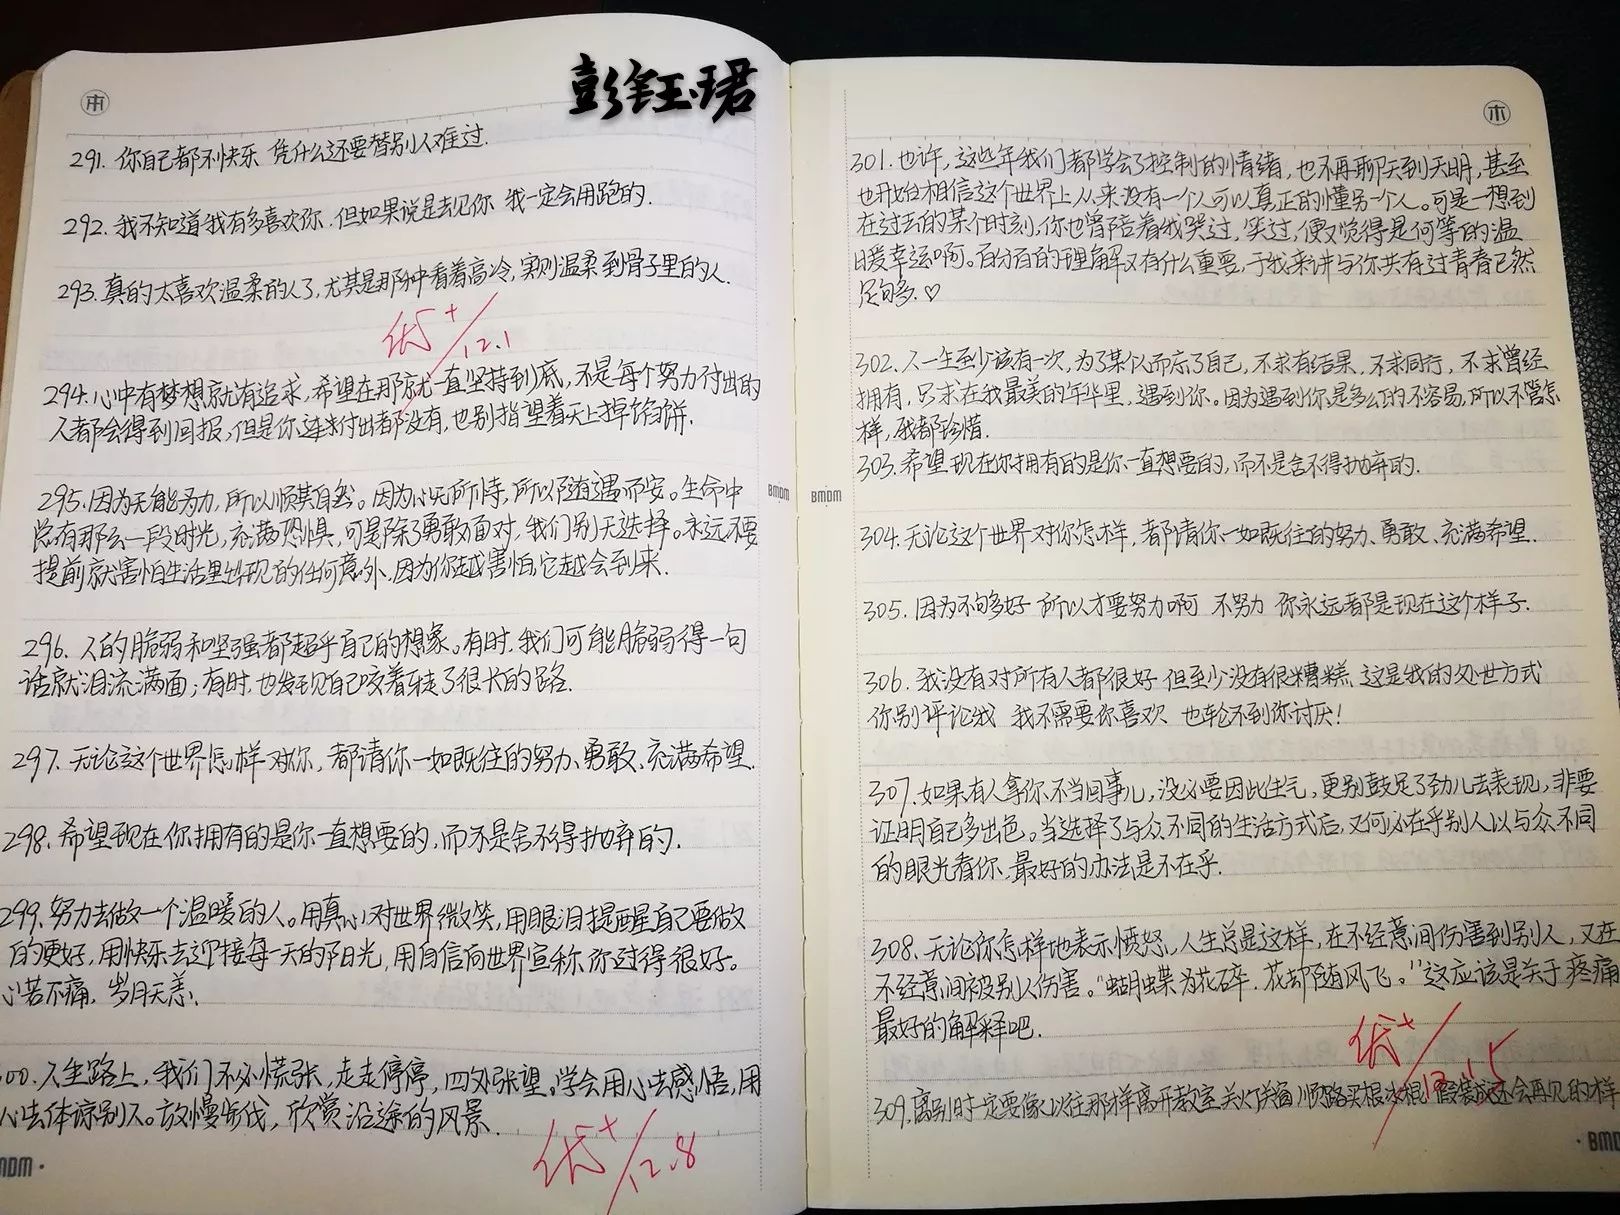 彭钰珺
291. 你自己都不快乐 凭什么还要替别人难过.
292. 我不知道我有多喜欢你.但如果说是去见你 我一定会用跑的.
293. 真的太喜欢温柔的人了,尤其是那种看着高冷,实则温柔到骨子里的人.
优+ 12.1
294. 心中有梦想就有追求,希望在那就一直坚持到底,不是每个努力付出的
人都会得到回报,但是你连付出都没有,也别指望着天上掉馅饼.
295. 因为无能为力,所以顺其自然。因为心无所恃,所以随遇而安。生命中
总有那么一段时光,充满恐惧,可是除了勇敢面对,我们别无选择。永远不要
提前就害怕生活里出现的任何意外.因为你越害怕,它越会到来.
296. 人的脆弱和坚强都超乎自己的想象。有时,我们可能脆弱得一句
话就泪流满面;有时,也发现自己咬着牙走了很长的路.
297. 无论这个世界怎样对你,都请你一如既往的努力、勇敢、充满希望.
298. 希望现在你拥有的是你一直想要的,而不是舍不得抛弃的.
299. 努力去做一个温暖的人。用真心对世界微笑,用眼泪提醒自己要做
的更好,用快乐去迎接每一天的阳光,用自信向世界宣称,你过得很好。
心若不痛,岁月无恙.
00. 人生路上,我们不必慌张,走走停停,四处张望,学会用心去感悟,用
心去体谅别人。放慢步伐,欣赏沿途的风景.
优+ 12.8
BMDM
301. 也许,这些年我们都学会了控制的情绪,也不再聊天到天明,甚至
也开始相信这个世界上从来没有一个人可以真正的懂另一个人。可是一想到
在过去的某个时刻,你也曾陪着我哭过,笑过,便又觉得是何等的温
暖幸运啊。百分百的理解又有什么重要,于我来讲与你共有过青春已然
足够.♡
302. 人一生至少该有一次,为了某个人而忘了自己,不求有结果,不求同行,不求曾经
拥有,只求在我最美的年华里,遇到你。因为遇到你是多么的不容易,所以不管怎
样,我都珍惜.
303. 希望现在你拥有的是你一直想要的,而不是舍不得抛弃的.
BMDM
304. 无论这个世界对你怎样,都请你一如既往的努力、勇敢、充满希望.
305. 因为不够好 所以才要努力啊 不努力 你永远都是现在这个样子.
306. 我没有对所有人都很好 但至少没有很糟糕 这是我的处世方式
你别评论我 我不需要你喜欢 也轮不到你讨厌!
307. 如果有人拿你不当回事儿,没必要因此生气,更别鼓足了劲儿去表现,非要
证明自己多出色。当选择了与众不同的生活方式后,又何必在乎别人以与众不同
的眼光看你.最好的办法是不在乎.
308. 无论你怎样地表示愤怒,人生总是这样,在不经意间伤害到别人,又在
不经意间被别人伤害。"蝴蝶为花碎,花却随风飞。"这应该是关于疼痛
最好的解释吧.
优+
309. 离别时一定要像以往那样离开教室关灯关窗 顺路买根冰棍 假装成还会再见的样
BMDM